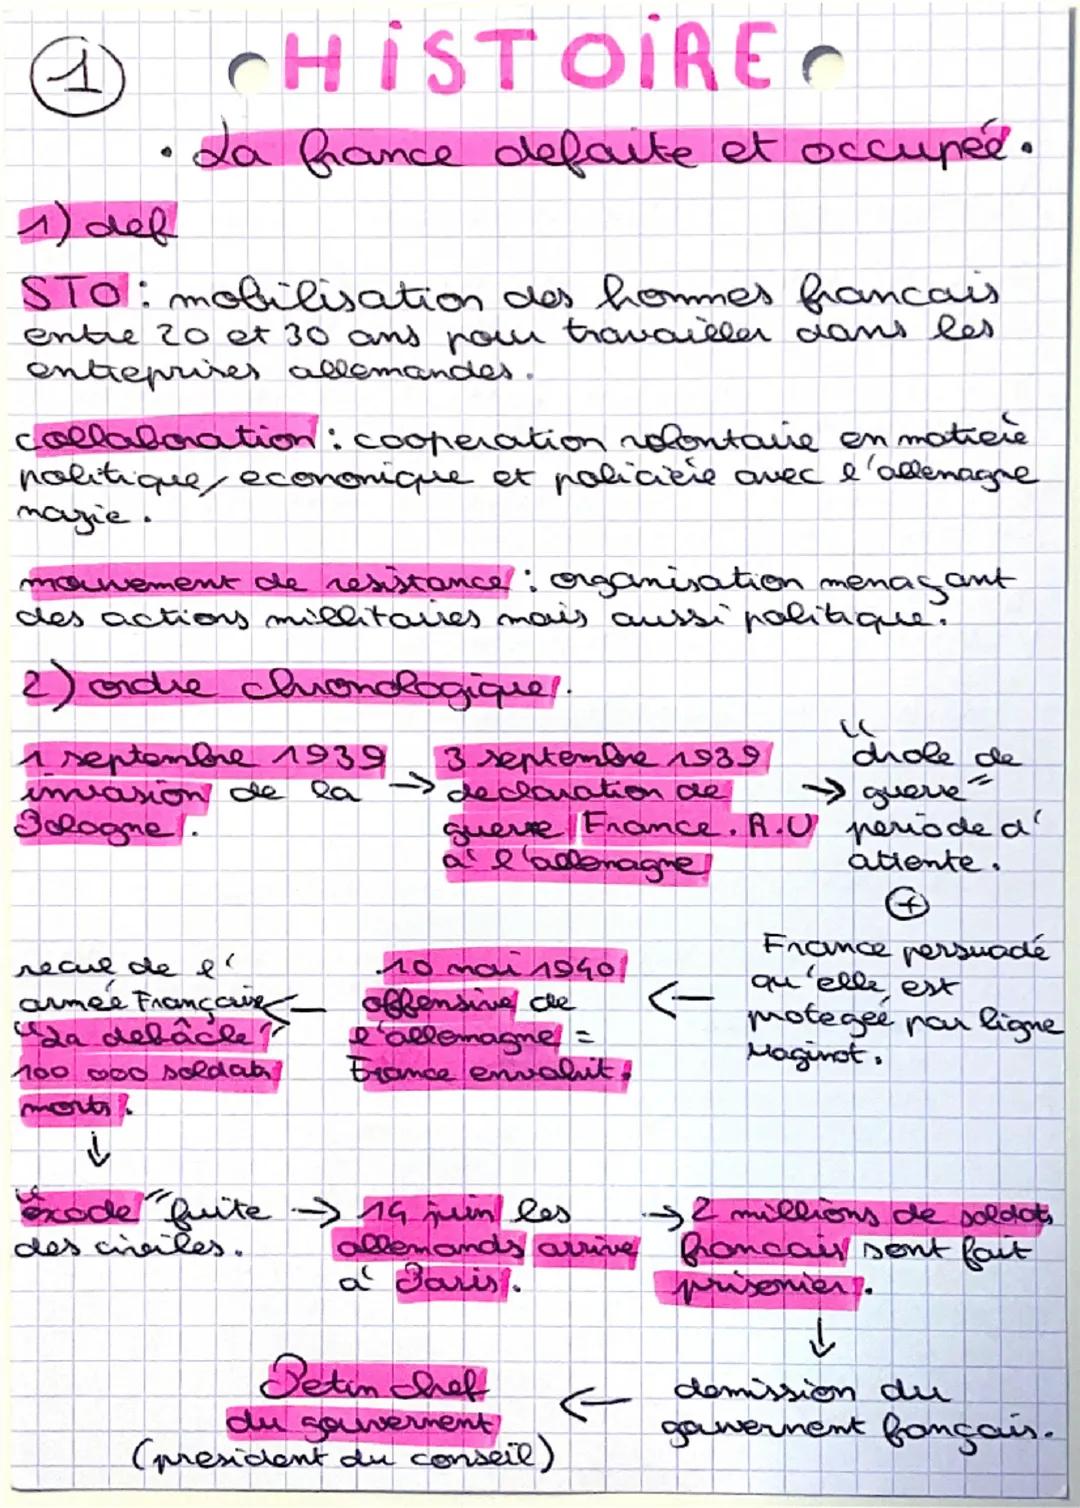 1
HISTOIRE
• La france defaite et occupée •
1) def
STO : mobilisation des hommes francais
entre 20 et 30 ans pour travailler dans les
entreprises allemandes.
collaboration : cooperation volontaire en matière
politique, economique et policière avec l'allemagne
nazie.
mouvement de resistance : organisation menaçant
des actions millitaires mais aussi politique.
2) ordre chronologique.
1 septembre 1939
invasion de la
Pologne.
→ 3 septembre 1939
declaration de
guerre France. R.U
à l'allemagne
→ "drole de
guerre"
periode d'
attente.
+
France persuadé
qu'elle est
protegée par ligne
Maginot.
← 10 mai 1940
offensive de
l'allemagne =
France envahit.
← recul de l'
armée Française
"La debâcle"
100 000 soldats
morts.
↓
"exode" fuite
des civiles.
→ 14 juin les
allemands arrive
à Paris.
→ 2 millions de soldats
francais sont fait
prisonier.
↓
demission du
gouvernent français.
← Petin chef
du gouvernent
(president du conseil)